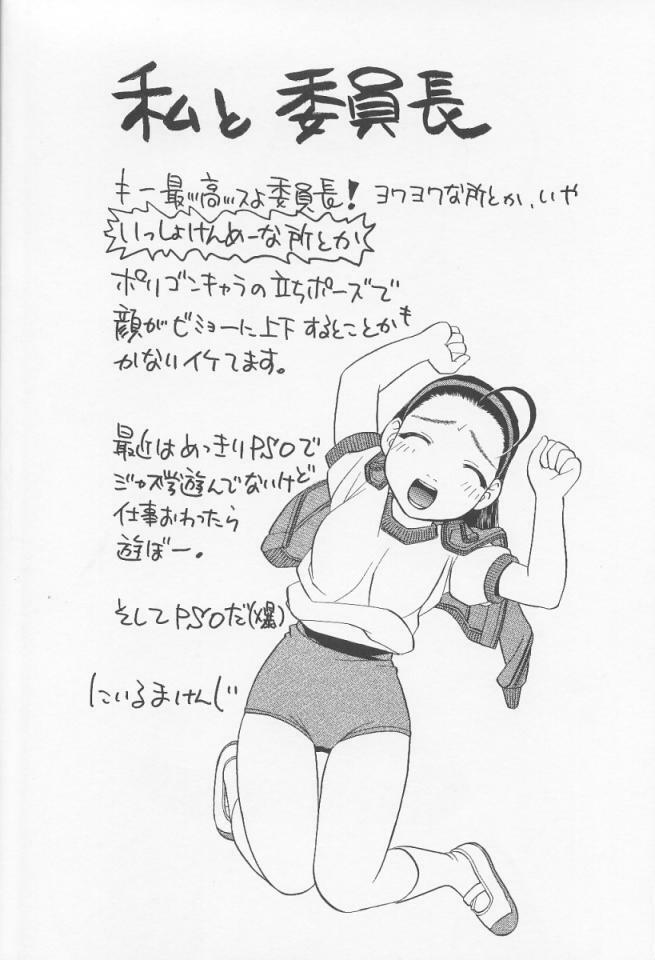 私と 委員長
キー最高ッスよ委員長！ヨワヨワな所とか、いや
いっしょけんめーな所とか
ポリゴンキャラの立ちポーズで
顔がビミョーに上下するとことかも
かないイケてます。
最近はめっきりPSOで
遊んでないけど
仕事おわったら
遊ぼー。
そしてPSOだ(爆)
にいるまけんじ